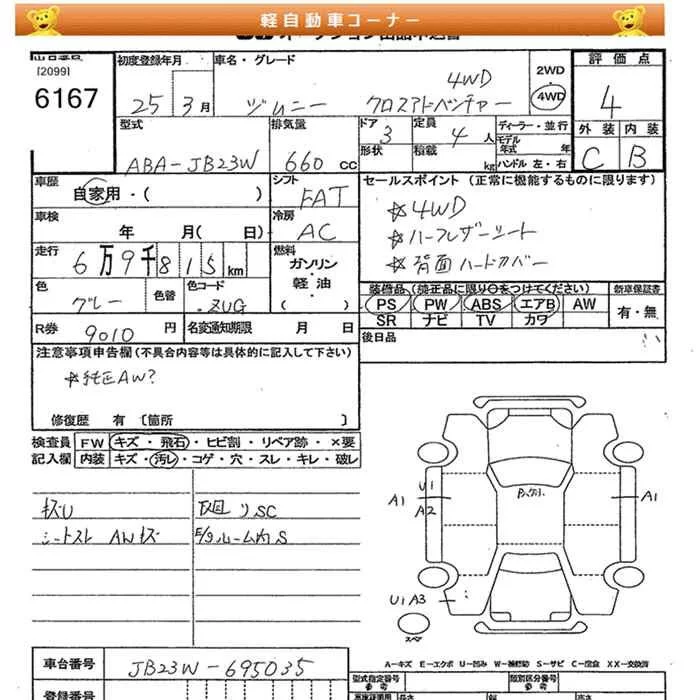 軽自動車コーナー
オークション出品申込書
出品番号
[2099]
6167
初度登録年月
25 3月
車名・グレード
ジムニー クロスアドベンチャー 4WD
2WD
4WD
評価点
4
外装 内装
C B
型式
ABA-JB23W
排気量
660 CC
ドア
3
形状
定員
4 人
積載
kg
ディーラー・並行
モデル
年式 年
ハンドル 左・右
車歴
自家用・( )
シフト
FAT
セールスポイント (正常に機能するものに限ります)
☆4WD
☆ハーフレザーシート
☆背面ハードカバー
車検
年 月( 日)
冷房
AC
走行
6万9千815km
燃料
ガソリン
・
軽油
・
( )
色
グレー
色替
色コード
ZUG
装備品 (純正品に限り○をつけてください)
PS PW ABS エアB AW
SR ナビ TV カワ
新車保証書
有・無
R券
9010 円
名変通知期限 月 日
後日品
注意事項申告欄 (不具合内容等は具体的に記入して下さい)
☆純正AW?
修復歴 有 〔箇所 〕
検査員
記入欄
FW キズ・飛石・ヒビ割・リペア跡・×要
内装 キズ・汚レ・コゲ・穴・スレ・キレ・破レ
キズU
シートスレ AWキズ
下廻リSC
E/gルーム内S
A1
U1
A2
A1
U1 A3
スペア
A-キズ E-エクボ U-凹み W-補修跡 S-サビ C-腐食 XX-交換済
車台番号
JB23W-695035
登録番号
型式指定番号
参考
類別区分番号
参考
長さ
高さ